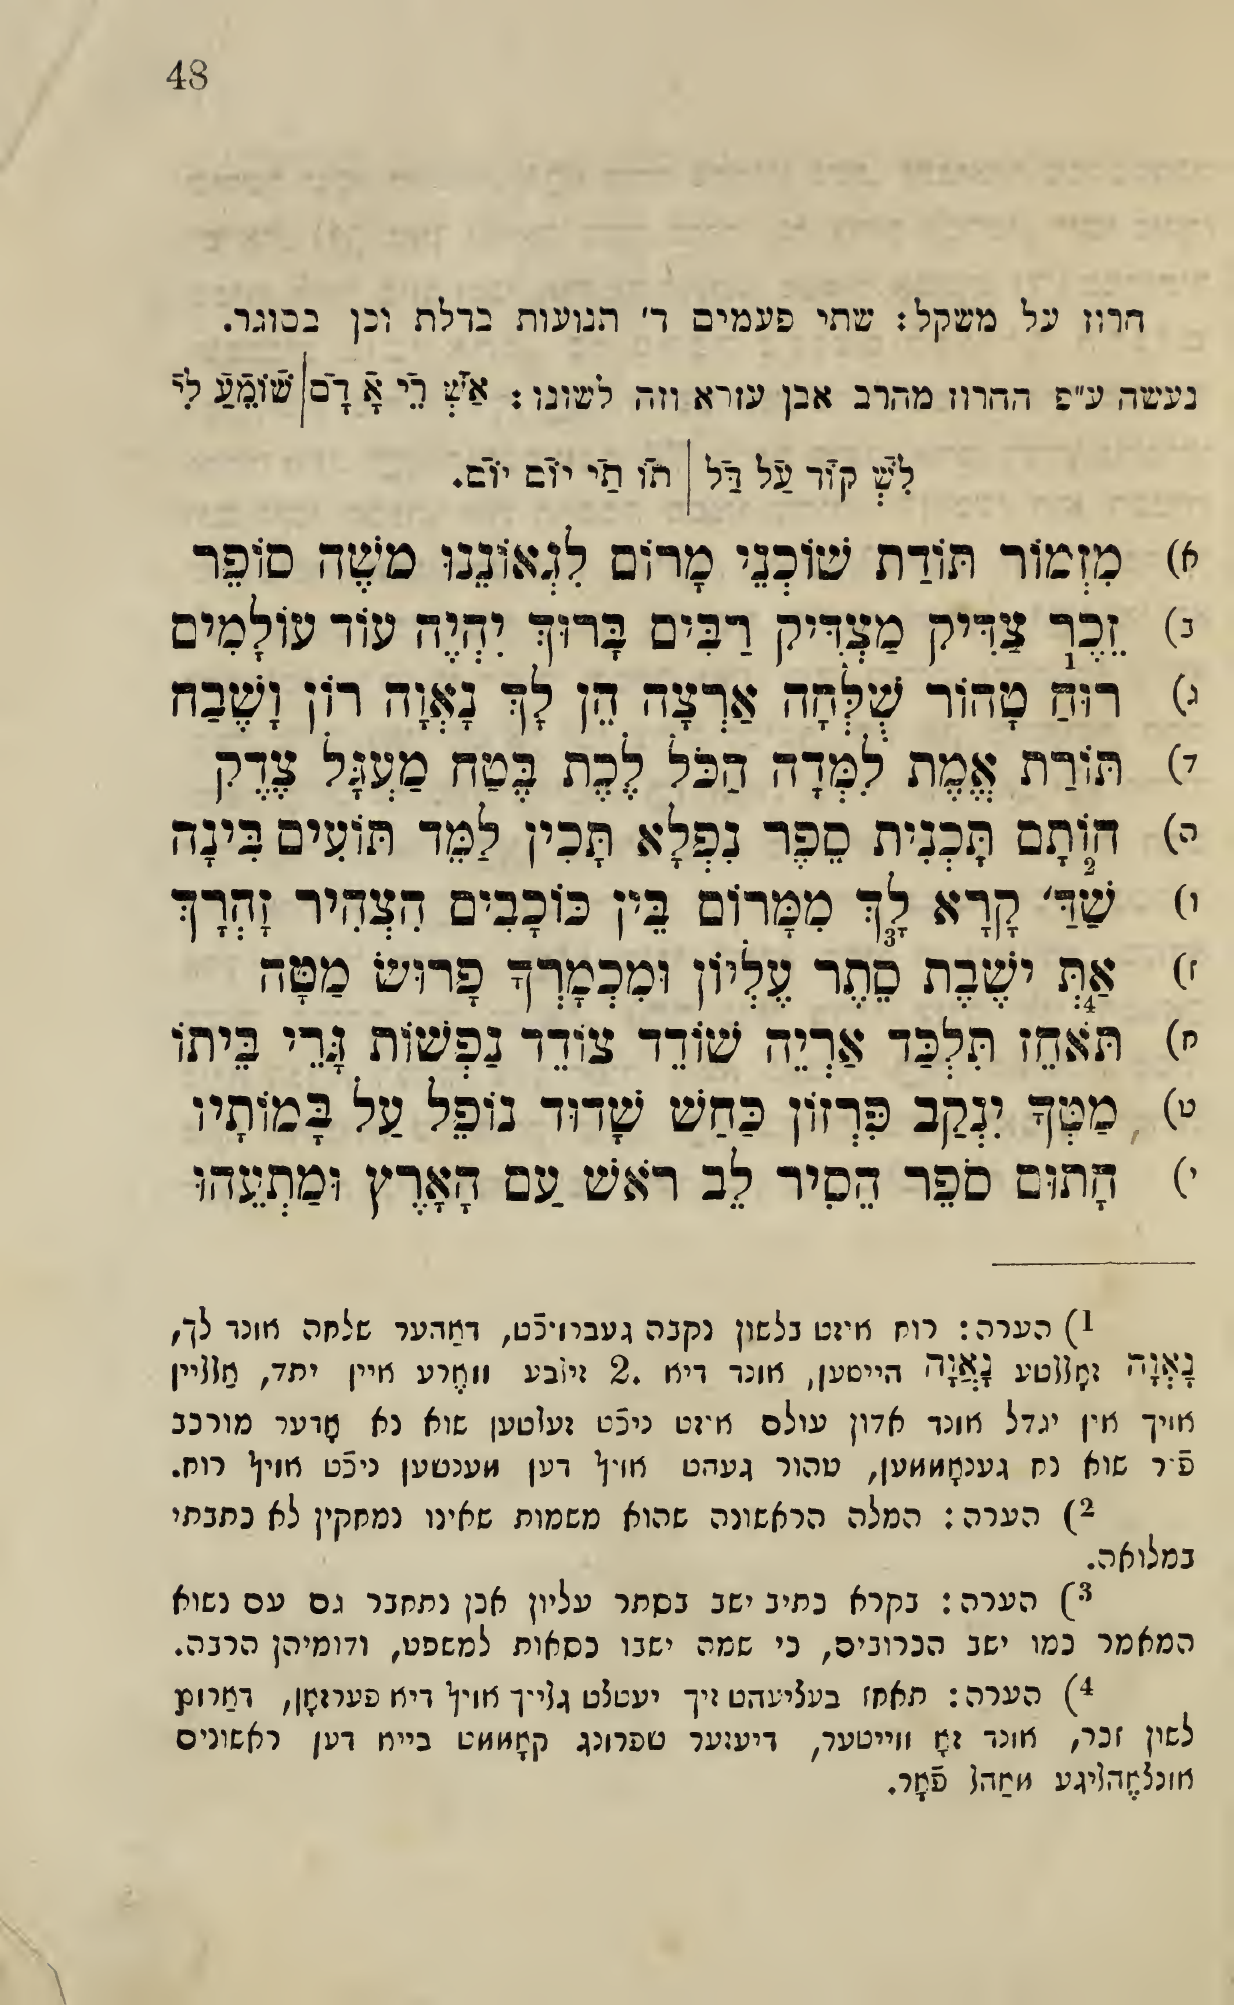 48
חרוז על משקל: שתי פעמים ד' תנועות בדלת וכן בסוגר.
נעשה ע"פ החרוז מהרב אבן עזרא וזה לשונו: אַשְׁ רֵי אָ דָם | שׁוֹמֵעַ לִי
לִשְׁ קוֹד עַל דַּל | תוֹ תַי יוֹם יוֹם.
א) מִזְמוֹר תּוֹדַת שׁוֹכְנֵי מָרוֹם לִגְאוֹנֵנוּ משֶׁה סוֹפֵר
ב) זֵכֶר צַדִּיק מַצְדִּיק רַבִּים בָּרוּךְ יִהְיֶה עוֹד עוֹלָמִים
ג) רוּחַ 1 טָהוֹר שְׁלְחָה אַרְצָה הֵן לָךְ נָאְוָה רוֹן וָשֶׁבַח
ד) תּוֹרַת אֱמֶת לִמְּדָה הַכֹּל לֶכֶת בֶּטַח מַעְגָּל צֶדֶק
ה) חוֹתָם תָּכְנִית סֵפֶר נִפְלָא תָּכִין לַמֵּד תּוֹעִים בִּינָה
ו) שַׁדַּ' 2 קָרָא לָךְ מִמָּרוֹם בֵּין כּוֹכָבִים הִצְהִיר זָהְרָךְ
ז) אַתְּ ישֶׁבֶת 3 סֵתֶר עֶלְיוֹן וּמִכְמָרְךָ פָרוּשׂ מַטָּה
ח) תֹּאחֵז 4 תִּלְכַּד אַרְיֵה שׁוֹדֵד צוֹדֵד נַפְשׁוֹת גָּרֵי בֵּיתוֹ
ט) מַטְּךָ יִנְקַב כִּרְזוֹן כַּחַשׁ שָׁדוּד נוֹפֵל עַל בָּמוֹתָיו
י) חָתוּם סֹפֵר הֵסִיר לֵב רֹאשׁ עַם הָאָרֶץ וּמַתְעֵהוּ
1) הערה: רוח איזט בלשון נקבה געברויכֿט, דאַהער שלחה אונד לך,
נָאְוָה זאָללטע נָאֲוָה הייסען, אונד דיא 2. זיובע וואֶרע איין יתד, אַללײן
אויך אין יגדל אונד אדון עולם איזט ניכֿט זעלטען שוא נא אָדער מורכב
פֿיר שוא נח גענאָממען, טהור געהט אויף דען מענטען ניכֿט אויף רוח.
2) הערה: המלה הראשונה שהוא משמות שאינו נמחקין לא כתבתי
במלואה.
3) הערה: בקרא כתיב ישב בסתר עליון אכן נתחבר גם עם נשוא
המאמר כמו ישב הכרובים, כי שמה ישבו כסאות למשפט, ודומיהן הרבה.
4) הערה: תאחז בעליעהט זיך יעטלט גלייך אויף דיא פערזאָן, דאַרום
לשון זכר, אונד זאָ ווייטער, דיעזער שפרונג קאָממט בייא דען ראשונים
אונלאֶהליגע מאַהל פֿאָר.